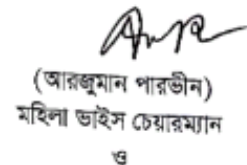 (আরজুমান পারভীন)
মহিলা ভাইস চেয়ারম্যান
ও